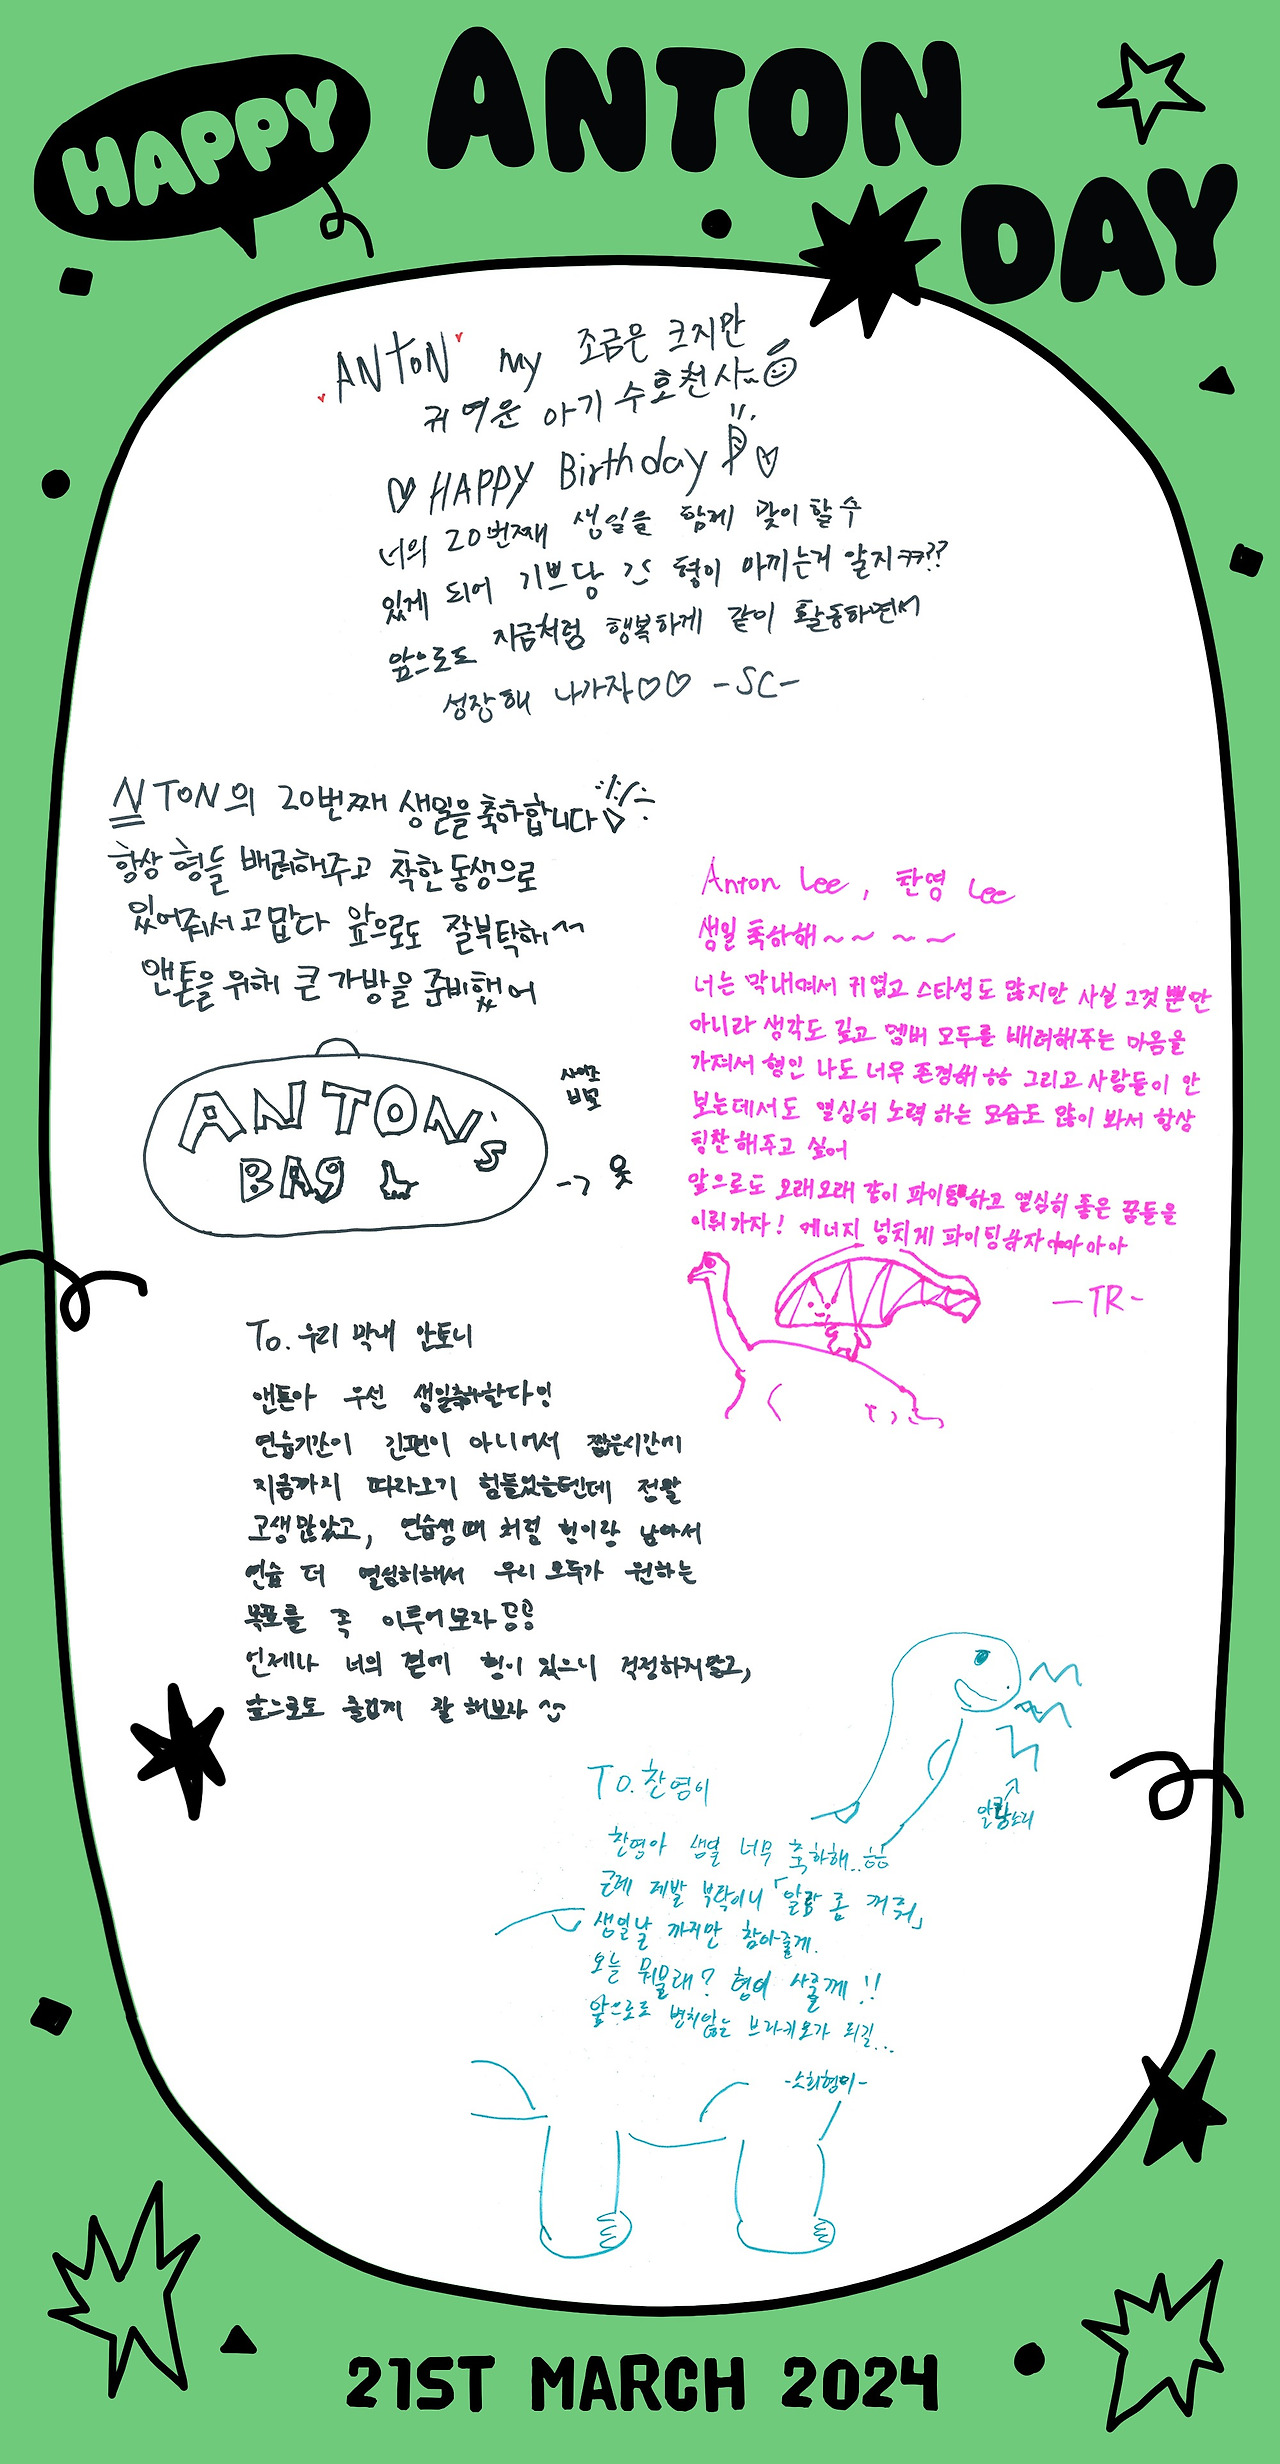 HAPPY
ANTON
DAY
ANTON my 조금은 크지만
귀여운 아기 수호천사~
HAPPY Birthday
너의 20번째 생일을 함께 맞이할 수
있게 되어 기쁘당 ㅋㅋ 형이 아끼는거 알지ㅋㅋ??
앞으로도 지금처럼 행복하게 같이 활동하면서
성장해 나가자♡♡ -SC-
ANTON의 20번째 생일을 축하합니다
항상 형들 배려해주고 착한 동생으로
있어줘서 고맙다 앞으로도 잘부탁해^^
앤톤을 위해 큰 가방을 준비했어
ANTON's
BAG
사이즈
비교
->
Anton Lee, 찬영 Lee
생일 축하해~~ ~ ~
너는 막내여서 귀엽고 스타성도 많지만 사실 그것 뿐만
아니라 생각도 깊고 멤버 모두를 배려해주는 마음을
가져서 형인 나도 너무 존경해 ㅎㅎ 그리고 사람들이 안
보는데서도 열심히 노력 하는 모습도 많이 봐서 항상
칭찬 해주고 싶어
앞으로도 오래오래 같이 파이팅하고 열심히 좋은 꿈들을
이뤄가자! 에너지 넘치게 파이팅하자 아아아
-TR-
To. 우리 막내 안토니
앤톤아 우선 생일축하한다잉
연습기간이 긴편이 아니어서 짧은시간에
지금까지 따라오기 힘들었을텐데 정말
고생많았고, 연습생 때 처럼 형이랑 남아서
연습 더 열심히해서 우리 모두가 원하는
목표를 꼭 이루어보자
언제나 너의 곁에 형이 있으니 걱정하지말고,
앞으로도 즐겁게 잘 해보자 ^^
알람소리
To. 찬영이
찬영아 생일 너무 축하해..ㅎㅎ
근데 제발 부탁이니 「알람 좀 꺼줘」
생일날 까지만 참아줄게.
오늘 뭐먹을래? 형이 사줄께!!
앞으로도 변치않는 브라키오가 되길...
-소희형이-
21ST MARCH 2024